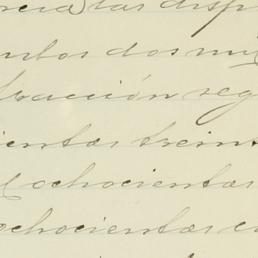 rcia las disp
ntos dos mil
tración reg
ientas trein
ochocientas
ochocientas c